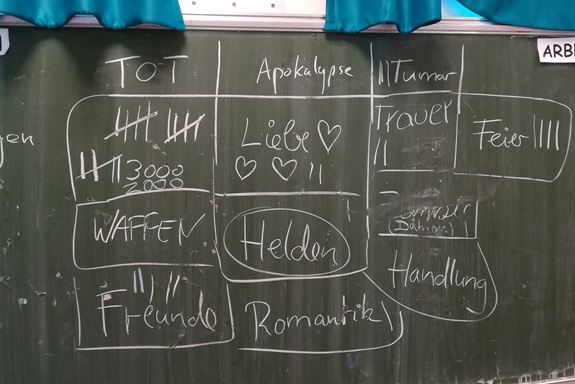 TOT
Apokalypse
Tumor
ARBE
Trauer
Feier
Liebe ♡
♡ ♡
3000
2000
WAFFEN
Helden
Handlung
Freunde
Romantik